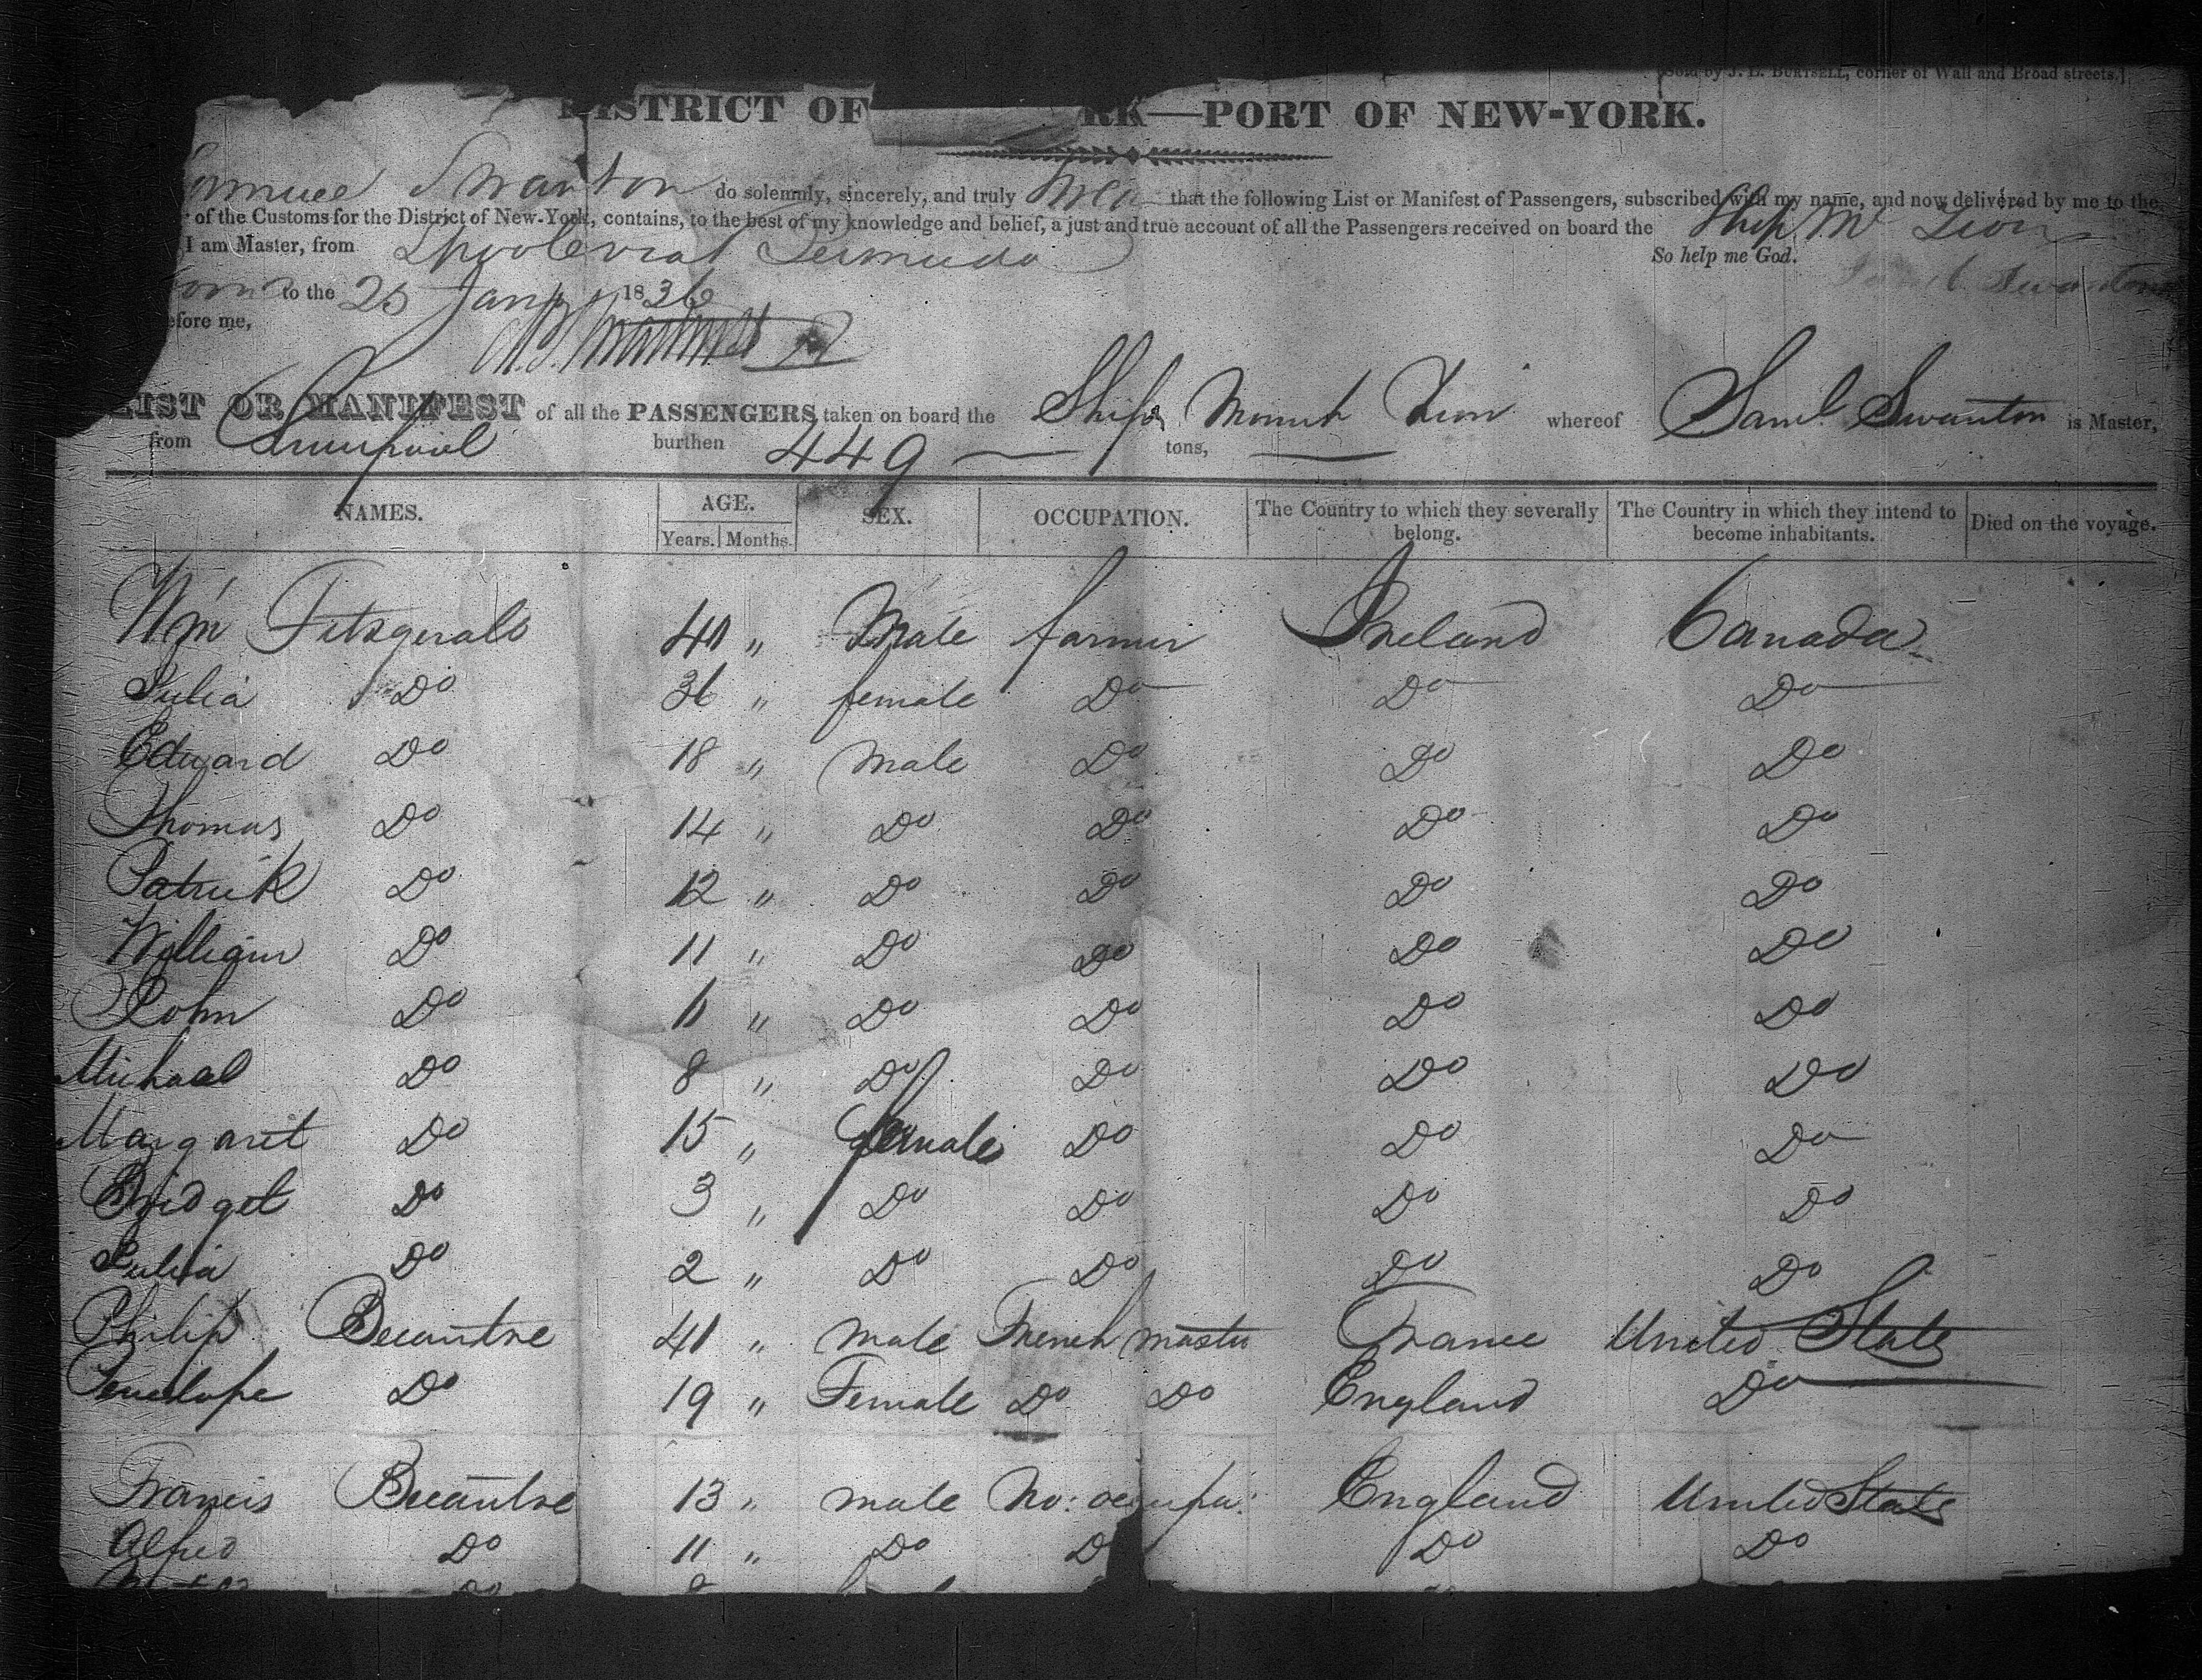 Sold by J. L. BURTSELL, corner of Wall and Broad streets.]
DISTRICT OF RK—PORT OF NEW-YORK.
Swanton do solemnly, sincerely, and truly that the following List or Manifest of Passengers, subscribed with my name, and now delivered by me to the
of the Customs for the District of New-York, contains, to the best of my knowledge and belief, a just and true account of all the Passengers received on board the Ship Mt Zion
I am Master, from Bermuda So help me God.
to the 25 Jany 1836 Swanton
efore me,
LIST OR MANIFEST of all the PASSENGERS taken on board the Ship Mount Zion whereof Saml. Swanton is Master,
from Liverpool burthen 449 tons,
NAMES. AGE. SEX. OCCUPATION. The Country to which they severally belong. The Country in which they intend to become inhabitants. Died on the voyage.
Years. Months.
Wm Fitzgerald 40 " Male farmer Ireland Canada
Julia Do 36 " female Do Do Do
Edward Do 18 " Male Do Do Do
Thomas Do 14 " Do Do Do Do
Patrick Do 12 " Do Do Do Do
William Do 11 " Do Do Do Do
John Do " Do Do Do Do
Michael Do 8 " Do Do Do Do
Margaret Do 15 " female Do Do Do
Bridget Do 3 " Do Do Do Do
Julia Do 2 " Do Do Do Do
Philip Becantne 41 " male French master France United States
Penelope Do 19 " Female Do Do England Do
Francis Becantne 13 " male No: occupa: England United States
Alfred Do 11 " Do D Do Do